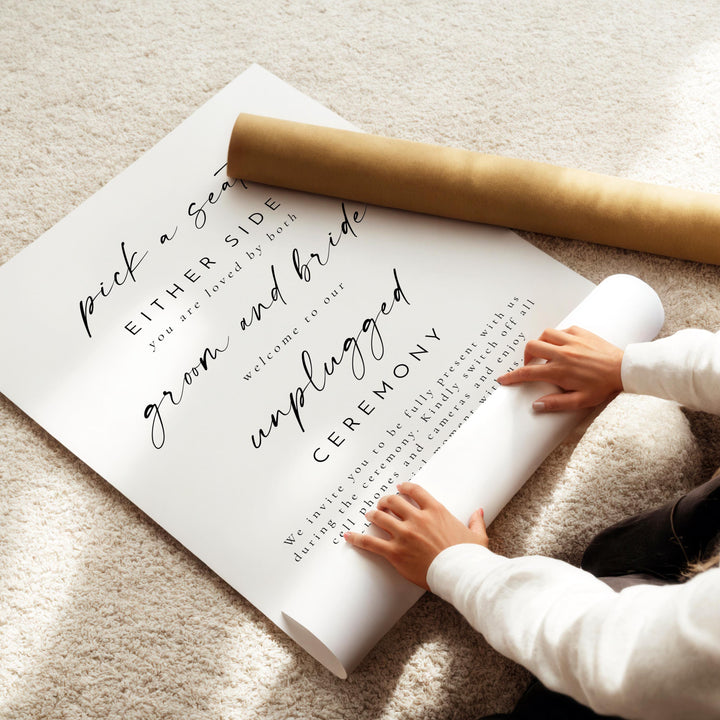 pick a seat
EITHER SIDE
you are loved by both
groom and bride
welcome to our
unplugged
CEREMONY
We invite you to be fully present with us
during the ceremony. Kindly switch off all
cell phones and cameras and enjoy
moment with us